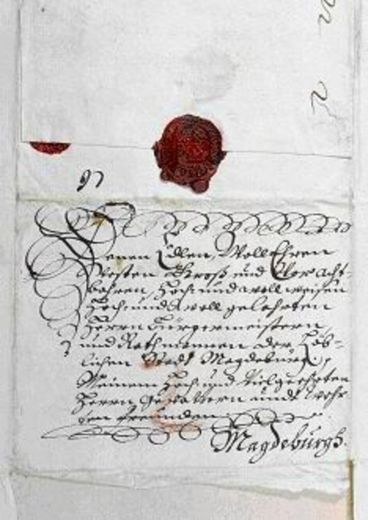 97
Denen Edlen, Woll Ehren
Vesten Groß und Vor Acht-
bahren, Hoch und woll weisen
Hoch und Woll gelahrten
Herrn Bürgermeistern
und Rathmannen der Löb-
lichen Stadt Magdeburg,
Meinem Hoch und Vielgeehrten
Herrn und
freunden
Magdeburgk.